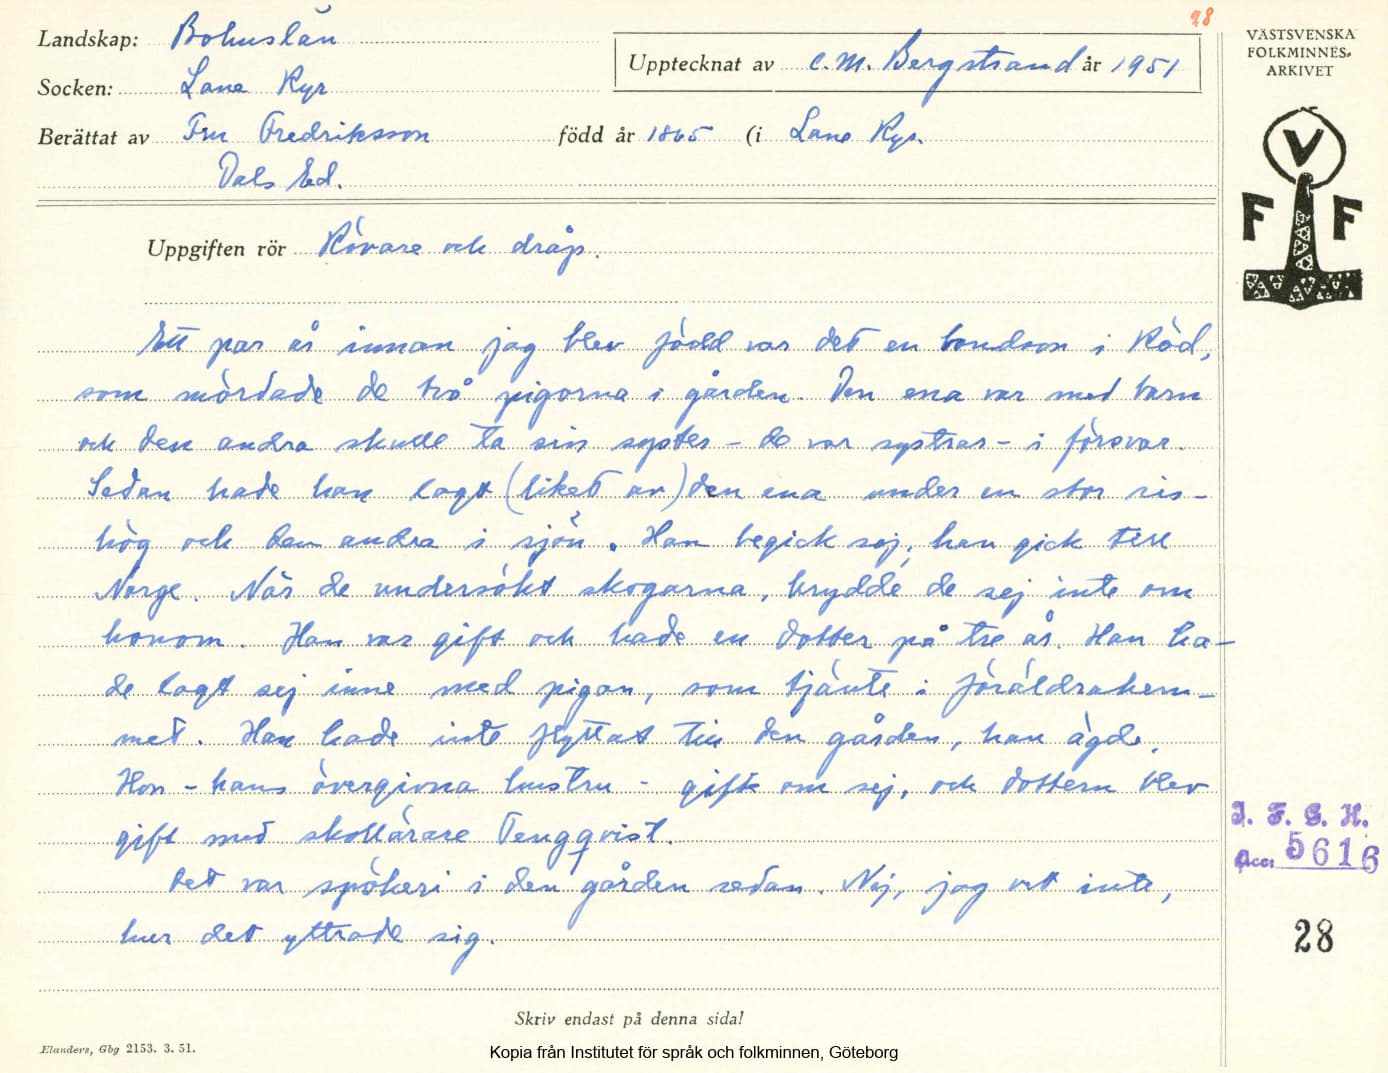 28
Landskap: Bohuslän
Upptecknat av C.M. Bergstrand år 1951
Socken: Lane Ryr
Berättat av Fru Fredriksson född år 1865 (i Lane Ryr.
Dals Ed.
VÄSTSVENSKA
FOLKMINNES-
ARKIVET
V
F F
Uppgiften rör Rövare och dråp.
Ett par år innan jag blev född var det en bondson i Röd,
som mördade de två pigorna i gården. Den ena var med barn
och den andra skulle ta sin syster - de var systrar - i försvar.
Sedan hade han lagt (liket av) den ena under en stor ris-
hög och den andra i sjön. Han begick sej, han gick till
Norge. När de undersökt skogarna, brydde de sej inte om
honom. Han var gift och hade en dotter på tre år. Han ha-
de lagt sej inne med pigan, som tjänte i föräldrahem-
met. Han hade inte flyttat till den gården, han ägde.
Hon - hans övergivna hustru - gifte om sej, och dottern blev
gift med skollärare Tengqvist.
Det var spökeri i den gården sedan. Nej, jag vet inte,
hur det yttrade sig.
I. F. G. H.
Acc: 5616
28
Skriv endast på denna sida!
Elanders, Gbg 2153. 3. 51.
Kopia från Institutet för språk och folkminnen, Göteborg